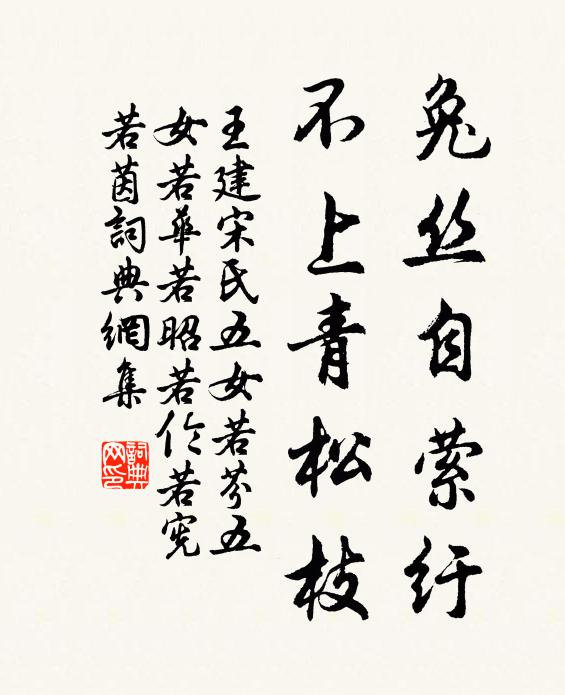 兔丝自萦纡
不上青松枝
王建宋氏五女若芬五
女若华若昭若伦若宪
若茵詞典網集
詞典网印